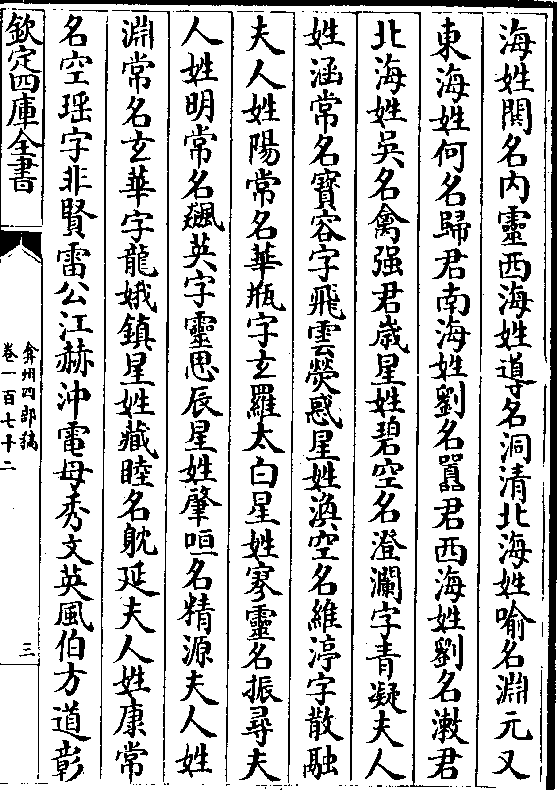 海姓閡名内靈西海姓導名洞清北海姓喻名淵元又
東海姓何名歸君南海姓劉名囂君西海姓劉名漱君
北海姓吳名禽强君歳星姓碧空名澄瀾字青凝夫人
姓涵常名寶容字飛雲熒惑星姓渙空名維渟字散融
夫人姓陽常名華瓶字玄羅太白星姓寥靈名振尋夫
人姓明常名飆英字靈思辰星姓肇咺名精源夫人姓
淵常名玄華字龍娥鎮星姓藏睦名躭延夫人姓康常
名空瑶字非賢雷公江赫沖電母秀文英風伯方道彰
欽定四庫全書
弇州四部稿
卷一百七十二
三